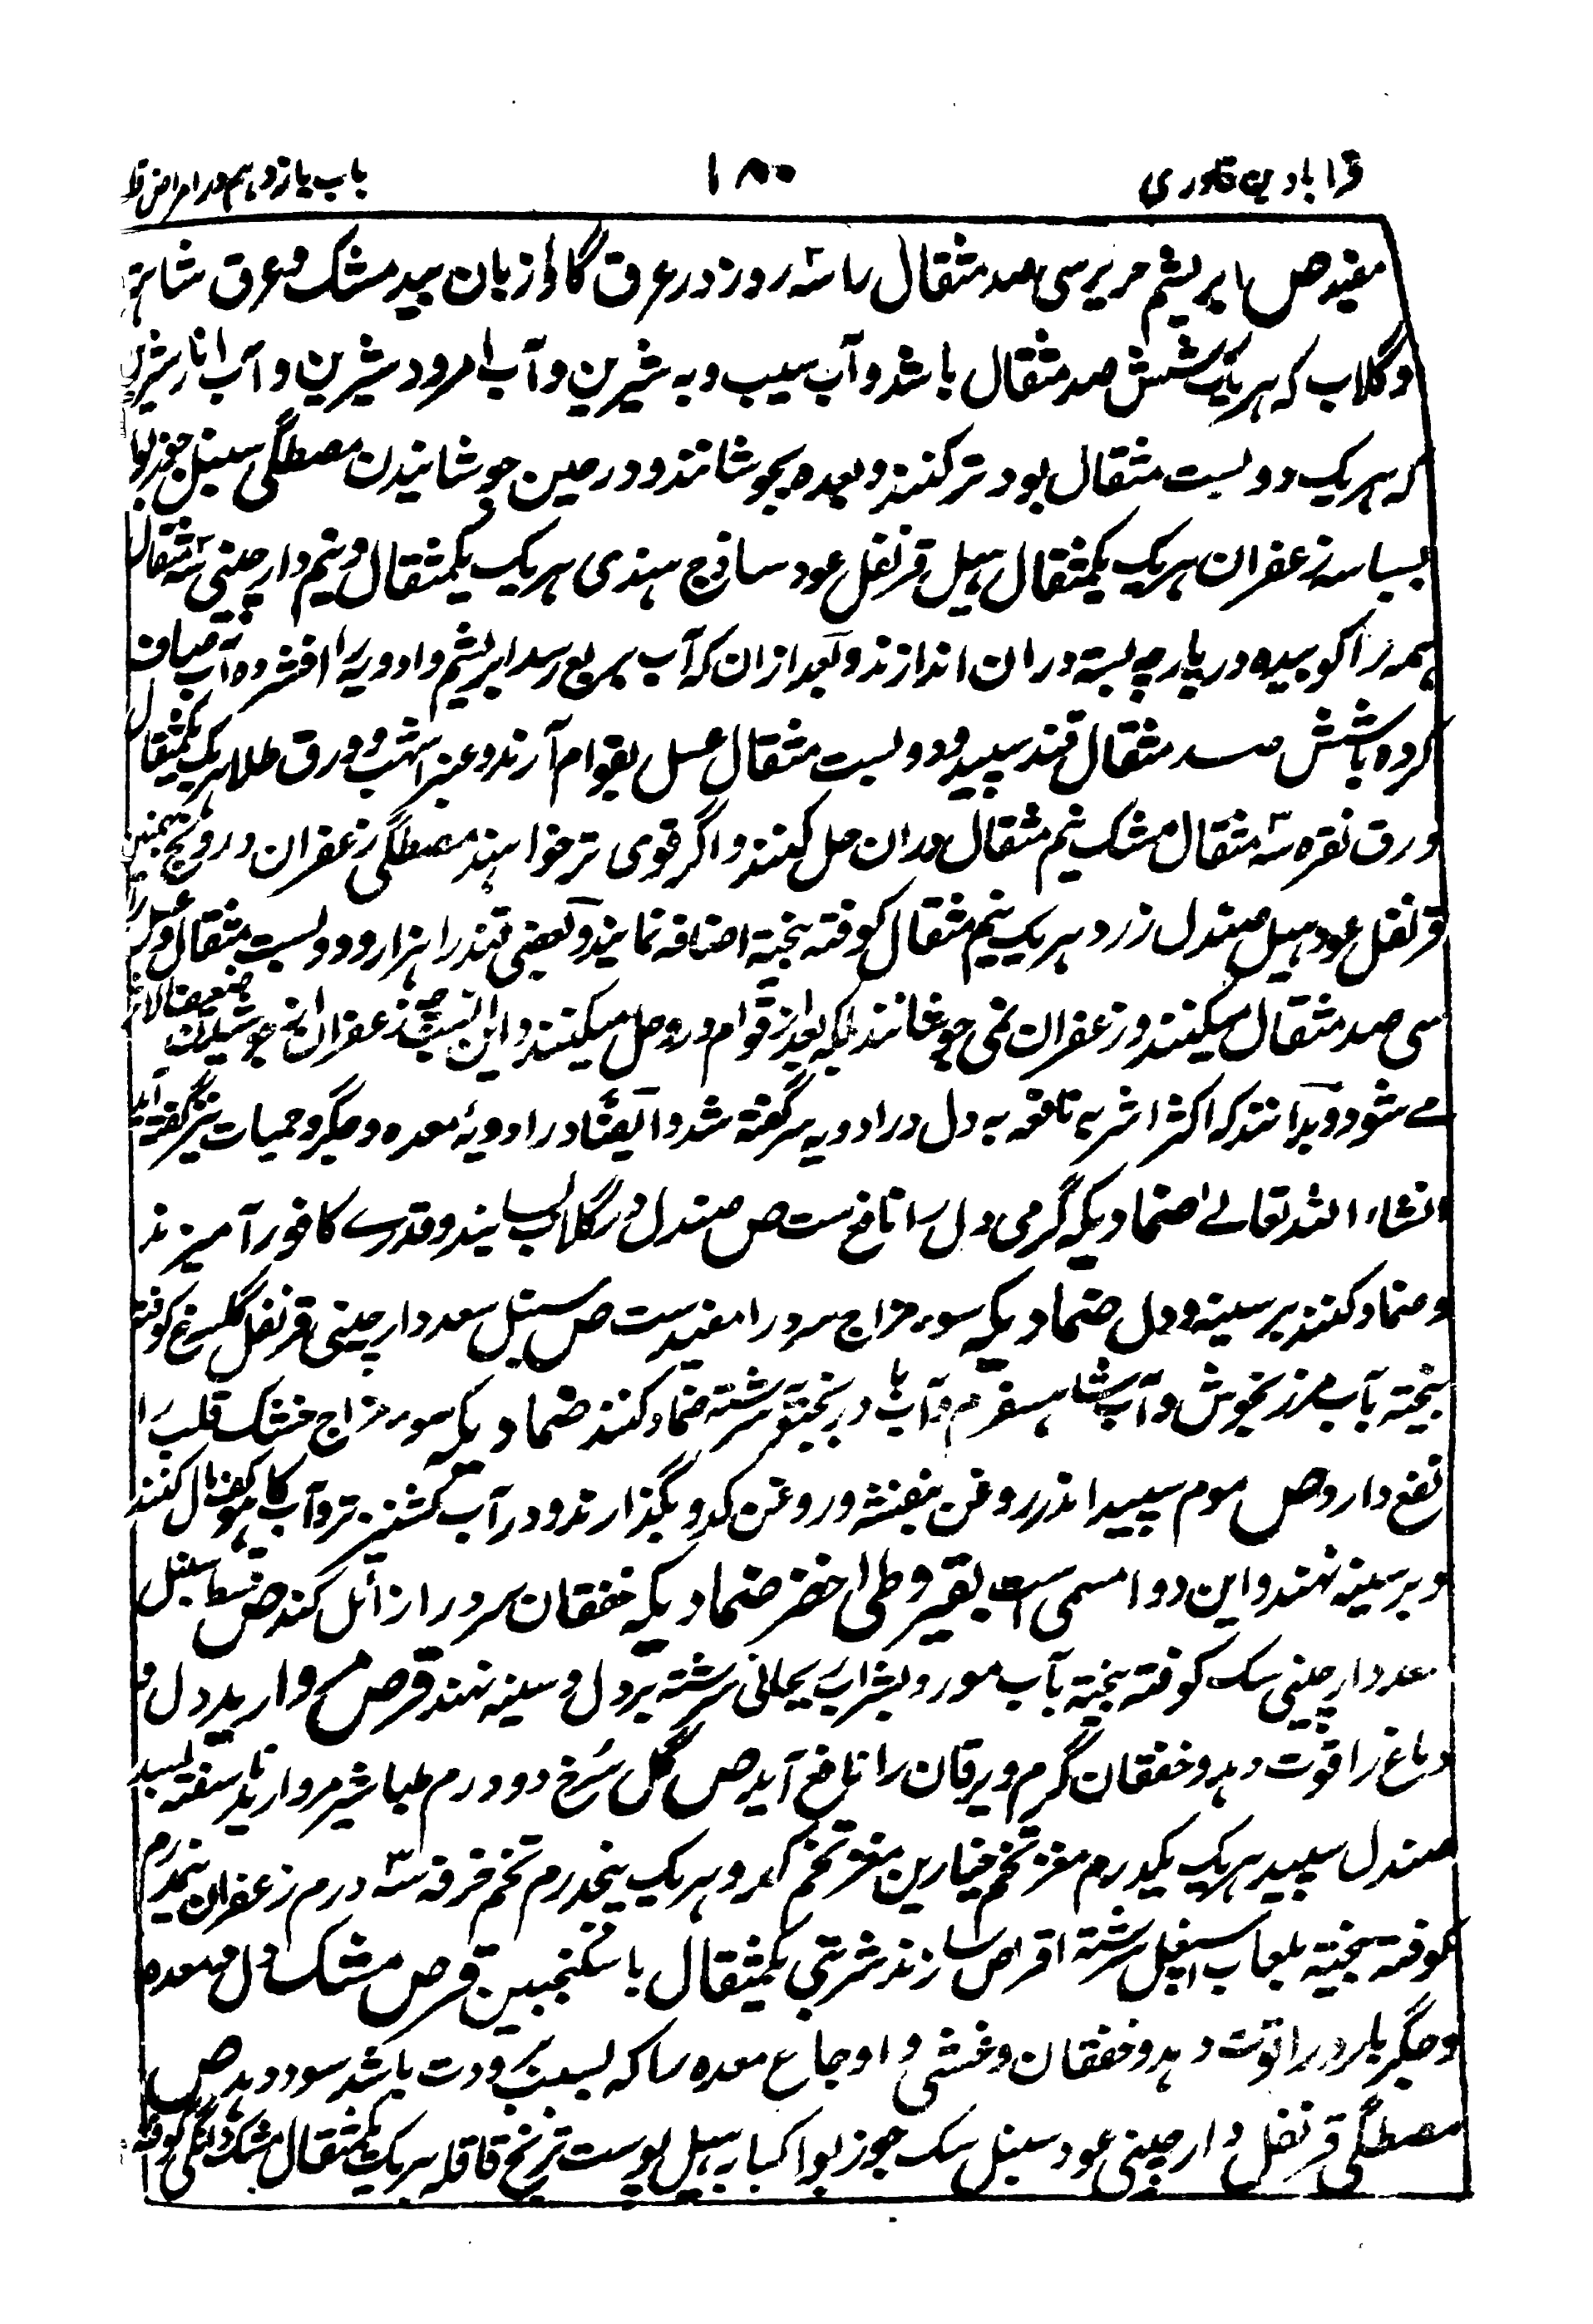 قرابادین قادری ۱۸۰ باب یازدہم در امراض
مفید ص ابریشم حریر سی صد مثقال را سہ روز در عرق گاوزبان و بید مشک و عرق شاہترہ
و گلاب کہ ہر یک شش صد مثقال باشد و آب سیب و بہ شیرین و آب امرود شیرین و آب انار شیرین
کہ ہر یک دو لیست مثقال بود تر کنند و بعدہ بجوشانند و در حین جوشانیدن مصطگی سنبل جوزبوا
بسباسہ زعفران ہر یک یکمثقال ہیل قرنفل عود ساذج ہندی ہر یک یکمثقال و نیم دارچینی سہ مثقال
ہمہ را کوبیدہ در پارچہ بستہ دران اندازند و بعد ازان کہ آب بربع رسد ابریشم و ادویہ را افشردہ آب صاف
کردہ باشش صد مثقال قند سپید و دو لیست مثقال عسل بقوام آرند و عنبر اشہب و ورق طلا ہر یک یکمثقال
ورق نقرہ سہ مثقال مشک نیم مثقال دران حل کنند و اگر قوی تر خواہند مصطگی زعفران درونج بہمنین
قرنفل عود ہیل صندل زرد ہر یک نیم مثقال کوفتہ بیختہ اضافہ نمایند و بعضی قند را ہزار و دو لیست مثقال و عسل را
سی صد مثقال میکنند و زعفران نمی جوشانند بلکہ بعد از قوام درو حل میکنند و این انسب ست زعفران از جوشیدن ضعیف
مے شود و بدانند کہ اکثر اشربہ نافعہ بہ دل در ادویہ سر گفتہ شد و ایضًا در ادویہٴ معدہ و جگر و حمیات نیز گفتہ آید
انشاء اللہ تعالے ضمادیکہ گرمی دل را نافع ست ص صندل در گلاب بسایند و قدرے کافور آمیزند
و ضماد کنند بر سینہ و دل ضمادیکہ سوء مزاج سرد را مفید ست ص سنبل سعد دارچینی قرنفل گلسرخ کوفتہ
بیختہ بآب مرزنجوش و آب شاہسفرم و آب بادرنجبویہ سرشتہ ضماد کنند ضمادیکہ سوء مزاج خشک قلب را
نفع دارد ص موم سپید اندر روغن بنفشہ و روغن کدو بگذارند و در آب کشنیز تر و آب کاہو کف مال کنند
و بر سینہ نہند و این دوا مسمی ست بقیروطی اخضر ضمادیکہ خفقان سرد را زائل کند ص قسط سنبل
سعد دارچینی سک کوفتہ بیختہ بآب مورد و بشراب ریحانی سرشتہ بر دل و سینہ نہند قرص مروارید دل و
دماغ را قوت دہد و خفقان گرم و یرقان را نافع آید ص گل سرخ دو درم طباشیر مروارید ناسفتہ بسد
صندل سپید ہر یک یکدرم مغز تخم خیارین مغز تخم کدو ہر یک پنجدرم تخم خرفہ سہ درم زعفران نیمدرم
کوفتہ بیختہ بلعاب اسپغل سرشتہ اقراص سازند شربتی یکمثقال با سکنجبین قرص مشک دل و معدہ
و جگر بارد را قوت دہد و خفقان و غشی و اوجاع معدہ را کہ بسبب برودت باشد سود دہد ص
مصطگی قرنفل دارچینی عود سنبل سک جوزبوا کبابہ ہیل پوست ترنج قاقلہ ہر یک یکمثقال مشک دانگی کوفتہ